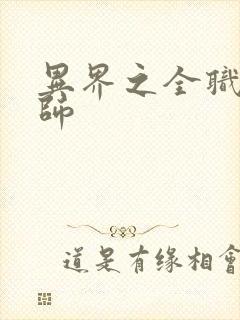 異界之全職
師
道是有缘相會